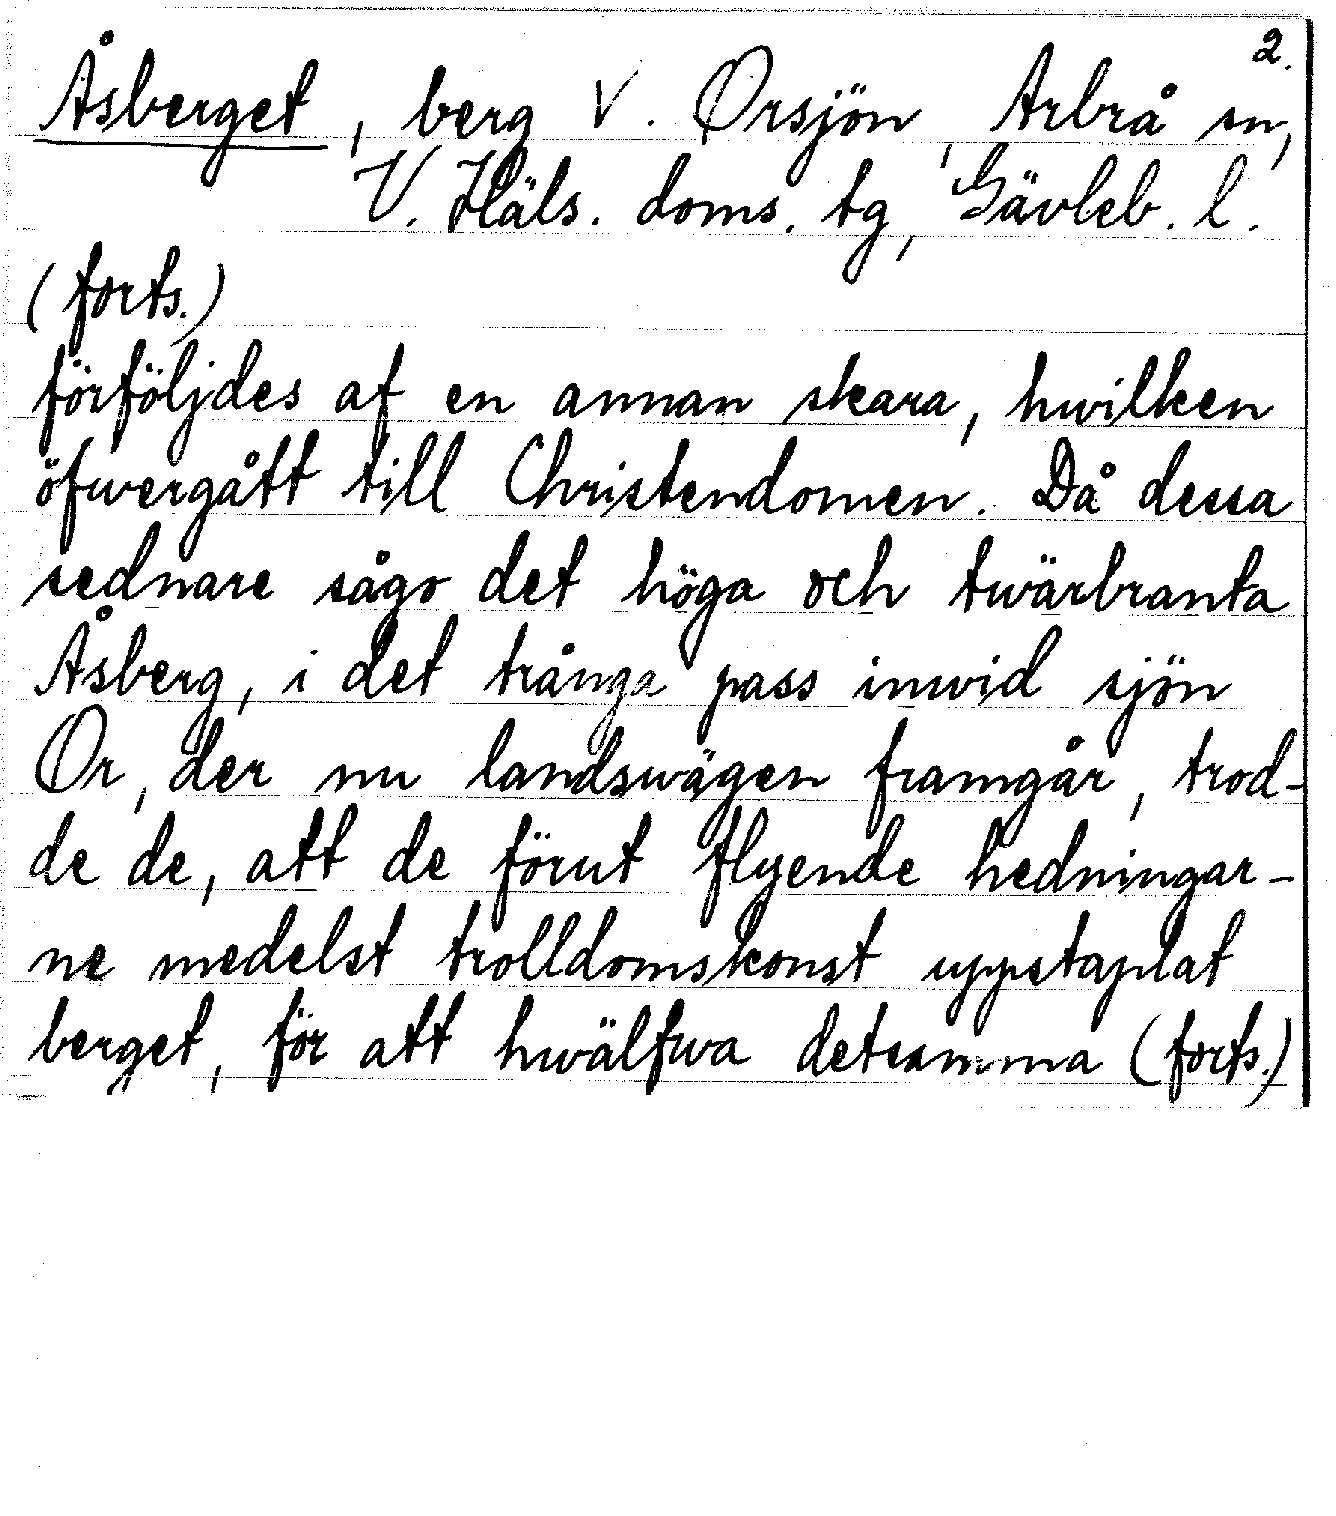 2.
Åsberget, berg V. Orsjön, Arbrå sn,
V. Häls. doms. tg, Gävleb. l.
(forts.)
förföljdes af en annan skara, hwilken
öfwergått till Christendomen. Då dessa
sednare sågo det höga och twärbranta
Åsberg, i det trånga pass inwid sjön
Or, der nu landswägen framgår, trod-
de de, att de förut flyende hedningar-
ne medelst trolldomskonst uppstaplat
berget, för att hwälfwa detsamma (forts.)